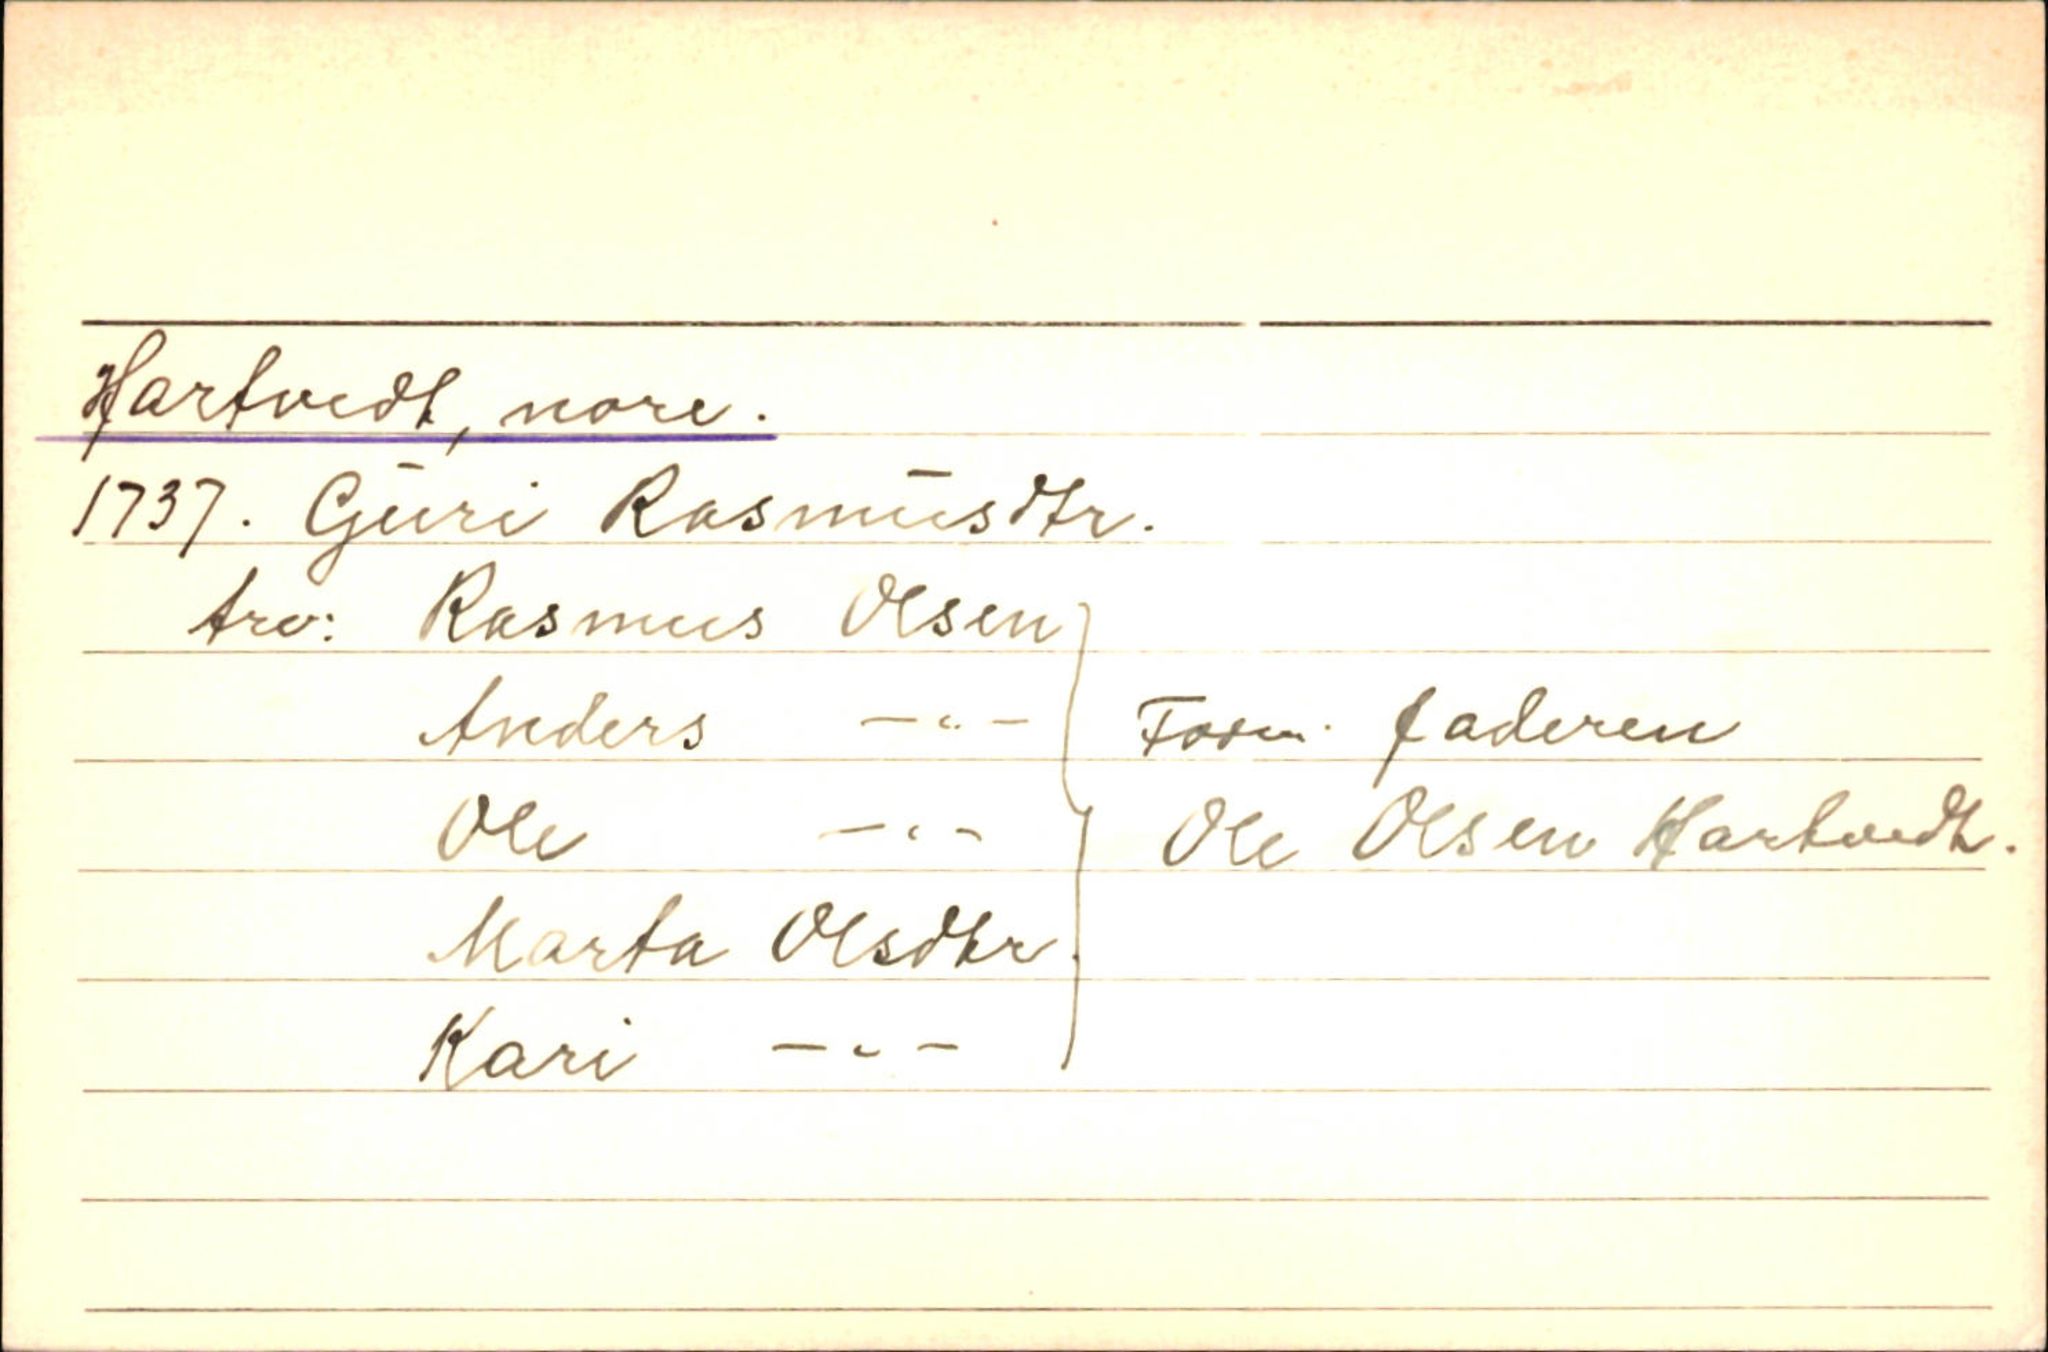 Hartvedt, nore.
1737. Guri Rasmusdtr.
Arv: Rasmus Olsen
Anders —"—
Form. faderen
Ole —"—
Ole Olsen Hartvedt.
Marta Olsdtr.
Kari —"—